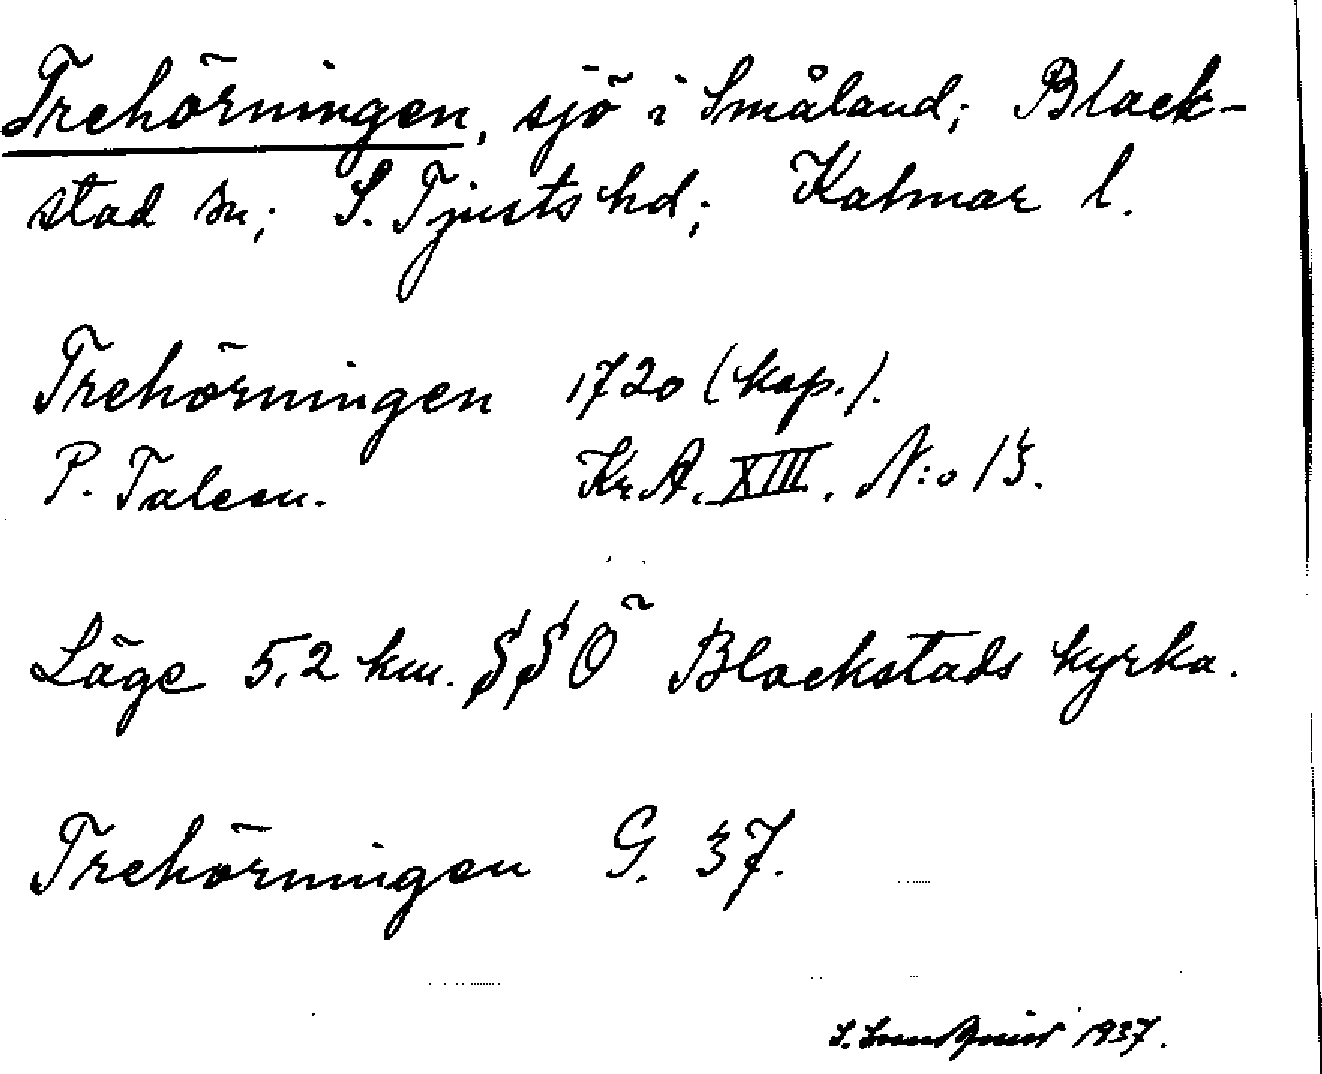 Trehörningen, sjö i Småland; Black-
stad sn; S. Tjusts hd; Kalmar l.
Trehörningen 1720 (kop.).
P. Talcen. Kr.A. XIII. N:o 13.
Läge 5,2 km. SSÖ Blackstads kyrka.
Trehörningen G. 37.
S. Lundquist 1937.